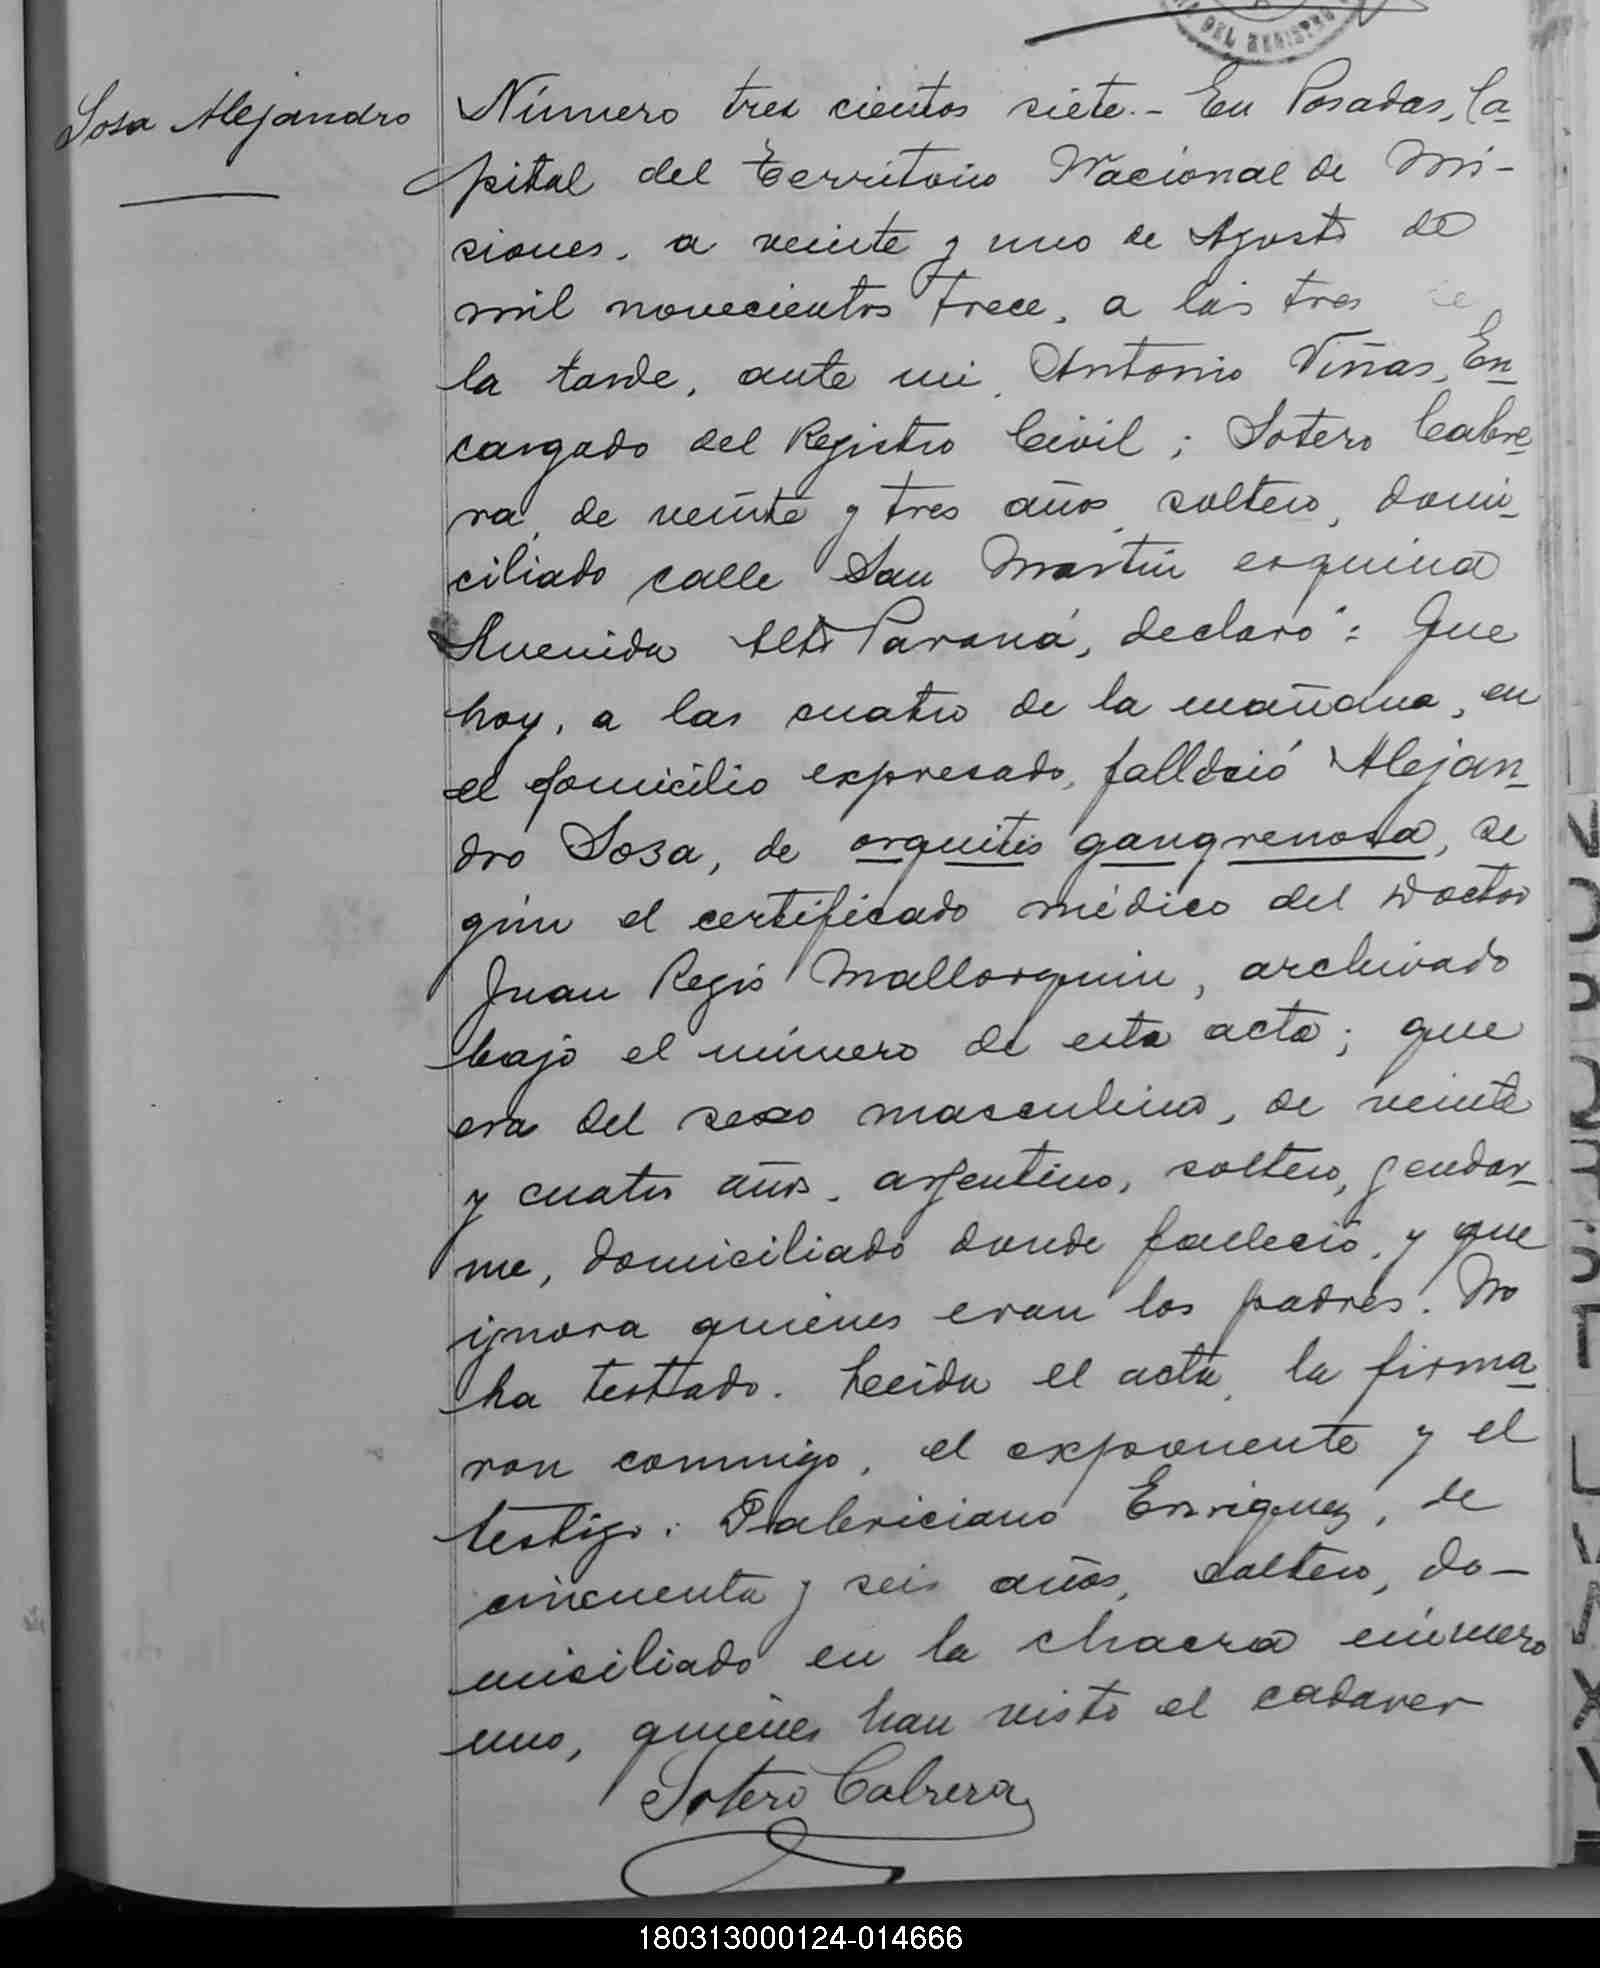 DEL REGISTRO
Sosa Alejandro
Número tres cientos siete.- En Posadas, Ca-
pital del Territorio Nacional de Mi-
siones, a veinte y uno de Agosto de
mil novecientos trece, a las tres de
la tarde, ante mi, Antonio Viñas, En-
cargado del Registro Civil; Sotero Cabre-
ra, de veinte y tres años, soltero, domi-
ciliado calle San Martin esquina
Avenida Alto Paraná, declaró: Que
hoy, a las cuatro de la mañana, en
el domicilio expresado, falleció Alejan-
dro Sosa, de orquitis gangrenosa, se
gún el certificado médico del Doctor
Juan Regis Mallorquin, archivado
bajo el número de esta acta; que
era del sexo masculino, de veinte
y cuatro años, argentino, soltero, gendar-
me, domiciliado donde falleció, y que
ignora quienes eran los padres. No
ha testado. Leida el acta, la firma-
ron conmigo, el exponente y el
testigo: Fabriciano Enriquez, de
cincuenta y seis años, soltero, do-
miciliado en la chacra número
uno, quienes han visto el cadaver
Sotero Cabrera
180313000124-014666